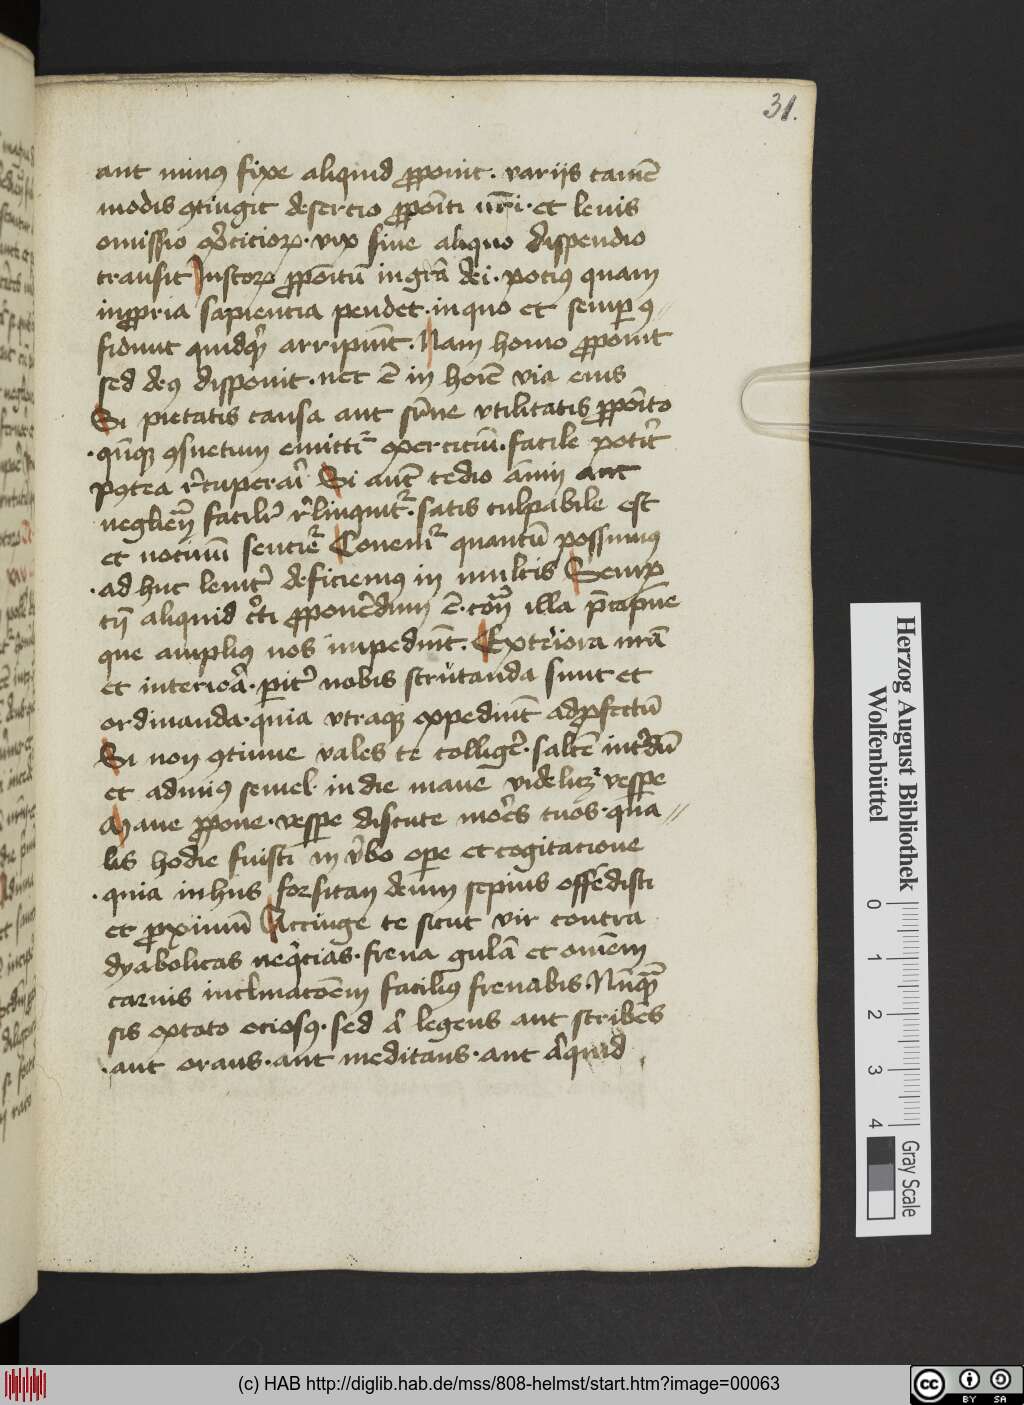 31.
aut minus fixe aliquid ꝓponit. variis tamē
modis ꝯtingit desercio ꝓpoīti nr̄i. et leuis
omissio exerciciorꝫ. vix sine aliquo dispendio
transit Iustorꝫ ꝓpoītū in gr̄a dei. pociꝰ quam
in ꝓpria sapientia pendet. in quo et semꝑ ꝯ〃
fidunt quidqꝫ arripiūt. Nam homo ꝓponit
sed deꝰ disponit. nec ē in hoīe via eius
Si pietatis causa aut fr̄ne vtilitatis ꝓpoīto
qn̄qꝫ ꝯsuetum omittit᷑ exercicium. facile potit᷑
postea r̄cuperari Si aut̄ tedio animi aut
negligen̄ facilit᷑ r̄linquit᷑. satis culpabile est
et nociuū sentiet᷑ Conemur quantū possumus
ad huc leuit᷑ deficiemꝰ in multis Semꝑ
tn̄ aliquid c̄ti ꝓponēdum ē. cont᷑ illa p̄cipue
que amplius nos impediūt. Exteriora nr̄a
et interiora. parit᷑ nobis scrutanda sunt et
ordinanda. quia vtraqꝫ expediūt ad ꝓfectū
Si non ꝯtinue vales te collige᷑. saltē int᷑dū
et ad minꝰ semel. in die mane videlicꝫ vesꝑe
Mane ꝓpone. vesꝑe discute mores tuos. qua〃
lis hodie fuisti in v̄bo oꝑe et cogitacione
quia in hiis forsitan deum sepius offēdisti
et ꝓximū Accinge te sicut vir contra
dyabolicas neq̄cias. frena gulā et omēm
carnis inclinacōem facilius frenabis. Nūquā
sis ex toto ociosꝰ. sed aut legens aut scribēs
aut orans. aut meditans. aut aliquid
Herzog August Bibliothek
Wolfenbüttel
0 1 2 3 4
Gray Scale
(c) HAB http://diglib.hab.de/mss/808-helmst/start.htm?image=00063
cc BY SA